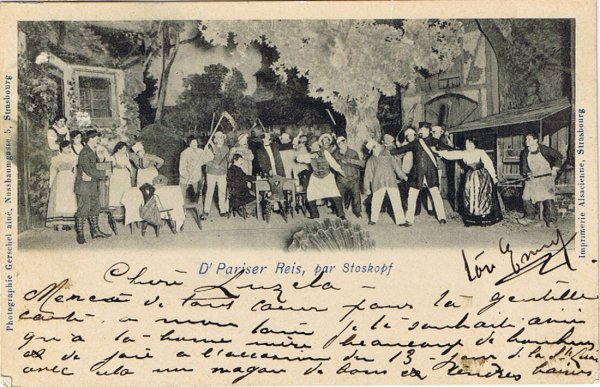 Photographie Gerschel aîné, Nussbaumgasse 5, Strasbourg
Imprimerie Alsacienne, Strasbourg.
D' Pariser Reis, par Stoskopf
Chère
Merci de tout cœur pour la gentille
carte, à mon tour je te souhaite ainsi
qu'à ta bonne mère beaucoup de bonheur
et de joie à l'occasion du 13
avec cela un de bons et tendres baisers